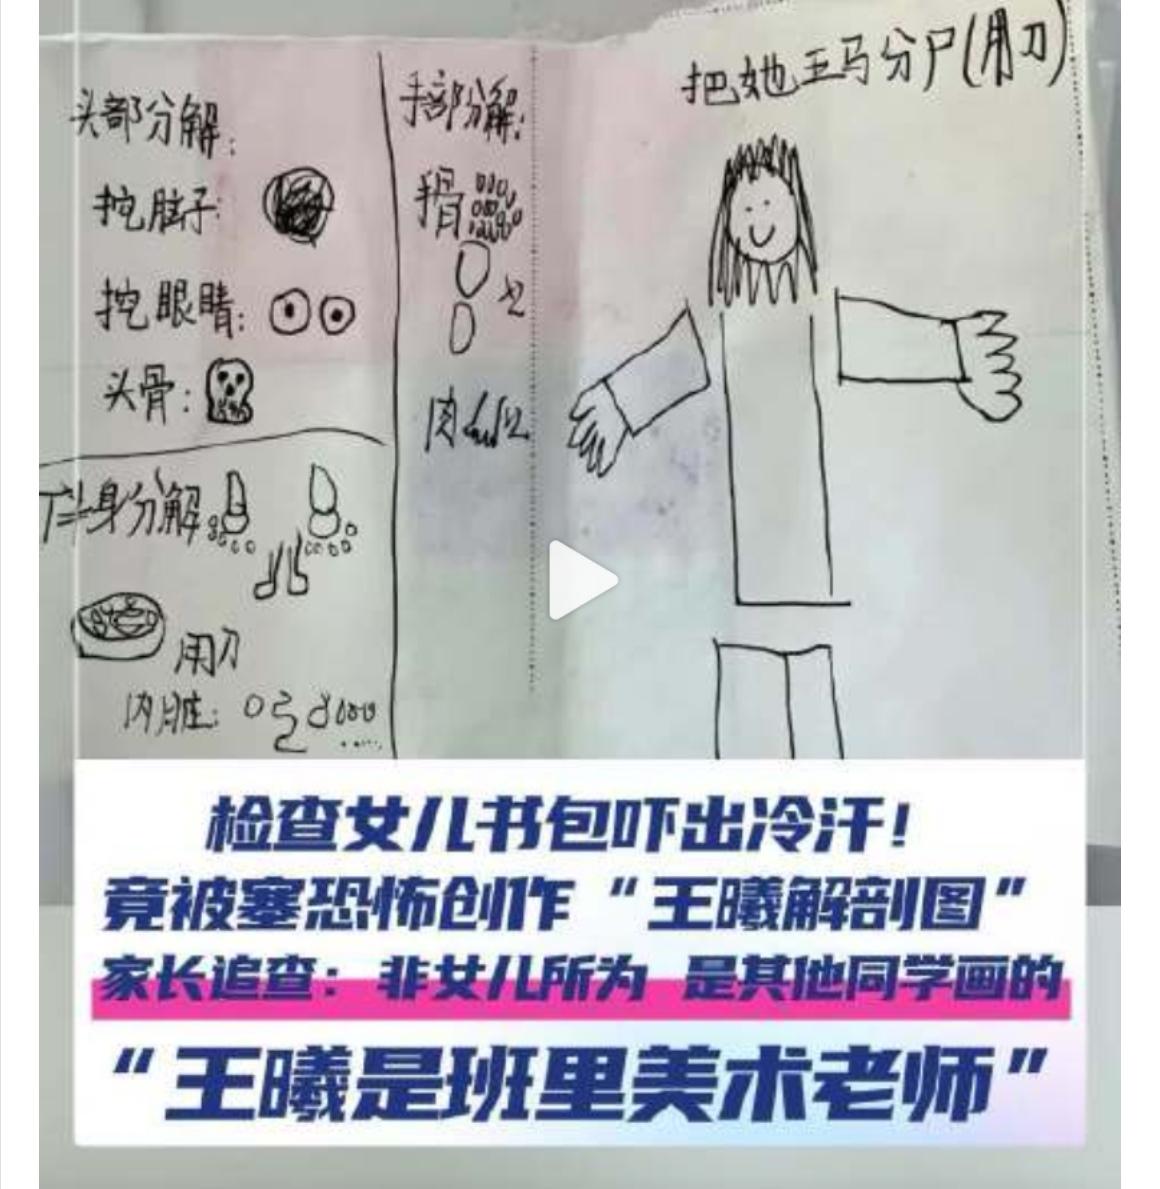 把她五马分尸(用刀)
头部分解:
挖脑子:
挖眼睛:
头骨:
手部分解:
手骨
x2
肉
x2
下半身分解
用刀
内脏:
检查女儿书包吓出冷汗!
竟被塞恐怖创作“王曦解剖图”
家长追查:非女儿所为 是其他同学画的
“王曦是班里美术老师”